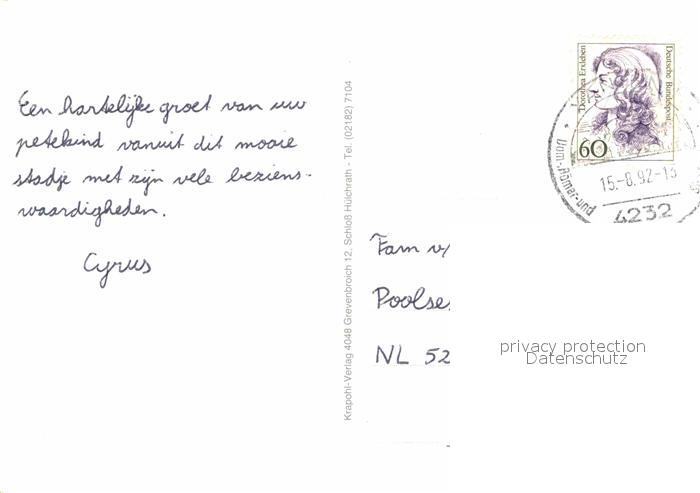 Een hartelijke groet van uw
petekind vanuit dit mooie
stadje met zijn vele beziens-
waardigheden.
Cyrus
Krapohl-Verlag 4048 Grevenbroich 12, Schloß Hülchrath - Tel. (02182) 7104
Dorothea Erxleben
Deutsche Bundespost
60
Dom-, Römer- und
15.-8.92-13
4232
Fam v/
Poolse
NL 52
privacy protection
Datenschutz